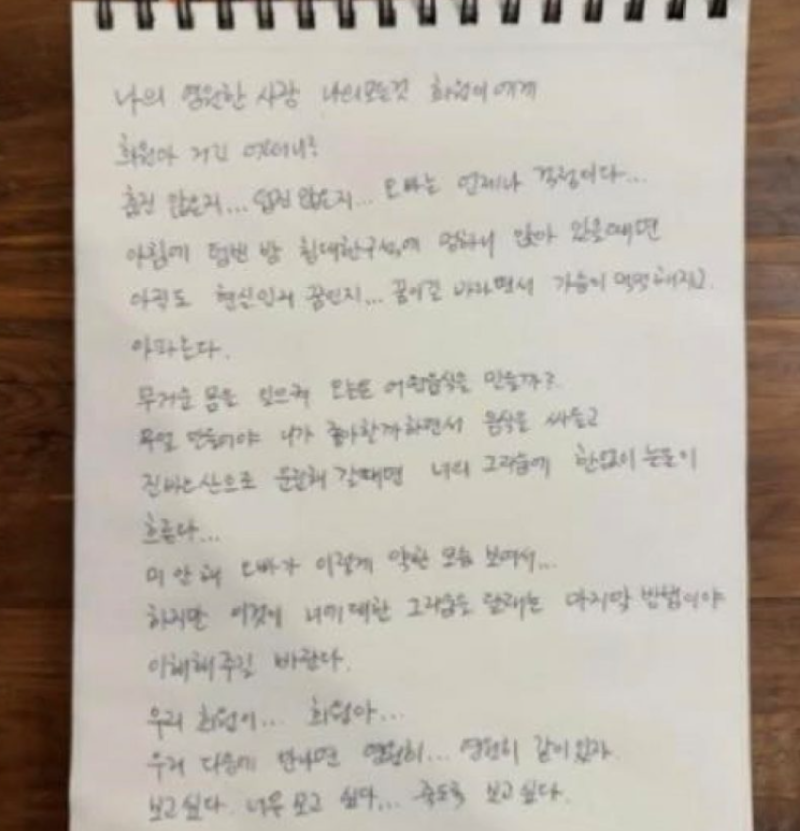 나의 영원한 사랑 나의모든것 희원이에게
희원아 거긴 어떠니?
춥진 않은지... 덥진 않은지... 오빠는 언제나 걱정이다...
아침에 텅빈 방 침대한구석에 멍하니 앉아 있을때면
아직도 현실인지 꿈인지... 꿈이길 바라면서 가슴이 먹먹해지고
아파온다.
무거운 몸을 일으켜 오늘은 어떤음식을 만들까?
무얼 만들어야 너가 좋아할까하면서 음식을 싸들고
진바르산으로 운전해 갈때면 너의 그리움에 한없이 눈물이
흐른다...
미안해 오빠가 이렇게 약한 모습 보여서...
하지만 이것이 너에대한 그리움을 달래는 마지막 방법이야
이해해주길 바란다.
우리 희원이... 희원아...
우리 다음에 만나면 영원히... 영원히 같이있자.
보고싶다. 너무 보고 싶다... 죽도록 보고싶다.